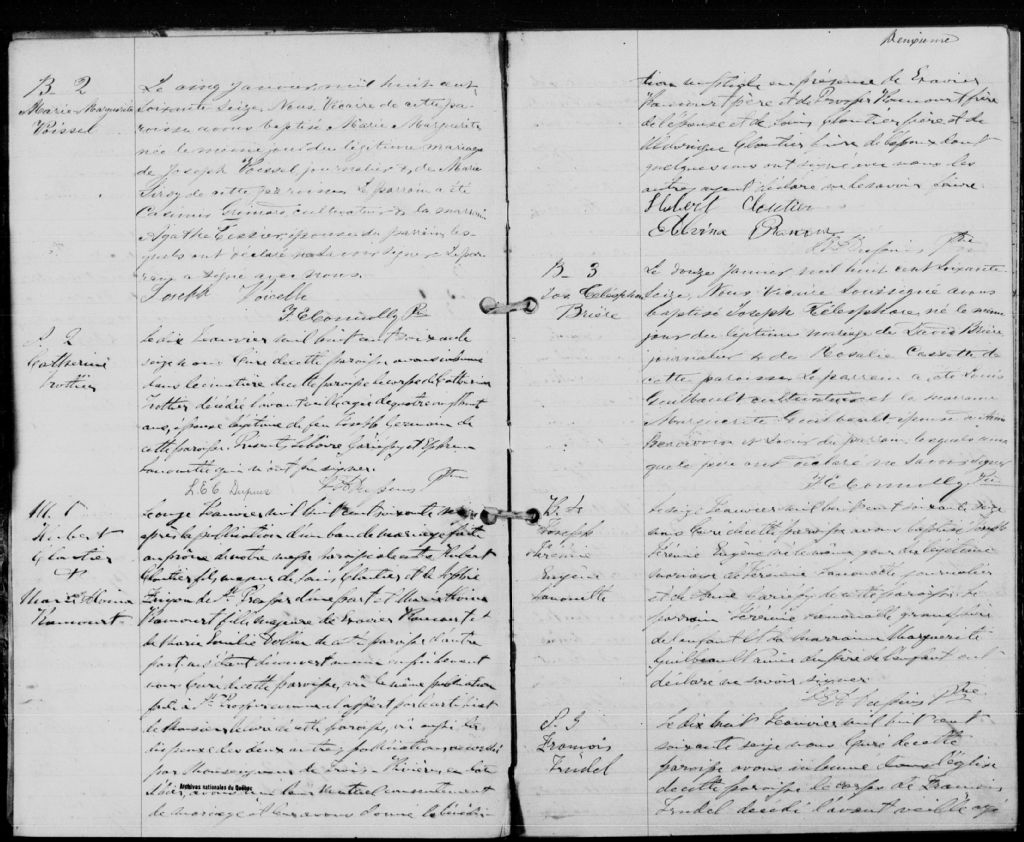 B. 2
Marie Marguerite
Voisel
Le cinq Janvier mil huit cent
soixante seize, Nous Vicaire de cette pa-
roisse avons baptisé Marie Marguerite
née le meme jour du légitime mariage
de Joseph Voissel journalier & de Marie
de cette paroisse. Le parrain a été
Casimir cultivateur & la marraine
Agathe Tessier épouse du parrain les-
quels ont déclaré ne savoir signer. Le pa-
rrain a signé avec nous.
Joseph Voiselle
F. E. Connolly Ptre
S. 2
Catherine
Trottier
Le dix Janvier mil huit cent soixante
seize nous Curé de cette paroisse avons inhumé
dans le cimetière de cette paroisse le corps de Catherine
Trottier décédée l'avant veille agée de quatre vingt
ans, épouse légitime de feu Joseph Germain de
cette paroisse. Présents Gariépy et
Lanouette qui n'ont su signer.
L. E. C. Dupuis Ptre
M. 1
Hubert
Cloutier
&
Marie
Hamourt
Le onze Janvier mil huit cent soixante seize
après la publication d'un ban de mariage faite
au prône de notre messe paroissiale entre Hubert
Cloutier fils majeur de Louis Cloutier et de Sophie
de St. Prosper d'une part et Marie
Hamourt fille majeure de Xavier Hamourt &
de Marie Emilie de cette paroisse d'autre
part ne s'étant découvert aucun empêchement
nous Curé de cette paroisse, vu la même publication
faite à St. Prosper comme il appert par le certificat
de Monsieur le Curé de cette paroisse, vu aussi la
dispense des deux autres publications accordée
par Monseigneur de Trois-Rivières en date
Archives nationales du Québec
avons reçu leur mutuel consentement
de mariage et leur avons donné la bénédic-
Deuxième
tion nuptiale en présence de Xavier
Hamourt père et de Prosper Hamourt frère
de l'épouse et de Louis Cloutier père et de
Cloutier frère de l'époux dont
quelques uns ont signé avec nous les
autres ayant déclaré ne le savoir faire.
Hubert Cloutier
Dupuis Ptre
B. 3
Jos. Telesphore
Brière
Le douze Janvier mil huit cent soixante
seize, Nous Vicaire soussigné avons
baptisé Joseph Télesphore né le meme
jour du légitime mariage de Louis Brière
journalier & de Rosalie Cossette de
cette paroisse. Le parrain a été Louis
Guilbault cultivateur et la marraine
Marguerite Guilbault épouse
et soeur du parrain, lesquels ainsi
que le père ont déclaré ne savoir signer
F. E. Connolly Ptre
B. 4
Joseph
Eugène
Lanouette
Le seize Janvier mil huit cent soixante seize
nous Curé de cette paroisse avons baptisé Joseph
Eugène né le même jour du légitime
mariage de Lanouette journalier
et de Gariépy de cette paroisse. Le
parrain Lanouette grand père
de l'enfant et la marraine Marguerite
Guilbeault du père de l'enfant ont
déclaré ne savoir signer.
L. E. C. Dupuis Ptre
S. 3
François
Trudel
Le dix huit Janvier mil huit cent
soixante seize nous Curé de cette
paroisse avons inhumé dans l'église
de cette paroisse le corps de François
Trudel décédé l'avant veille agé